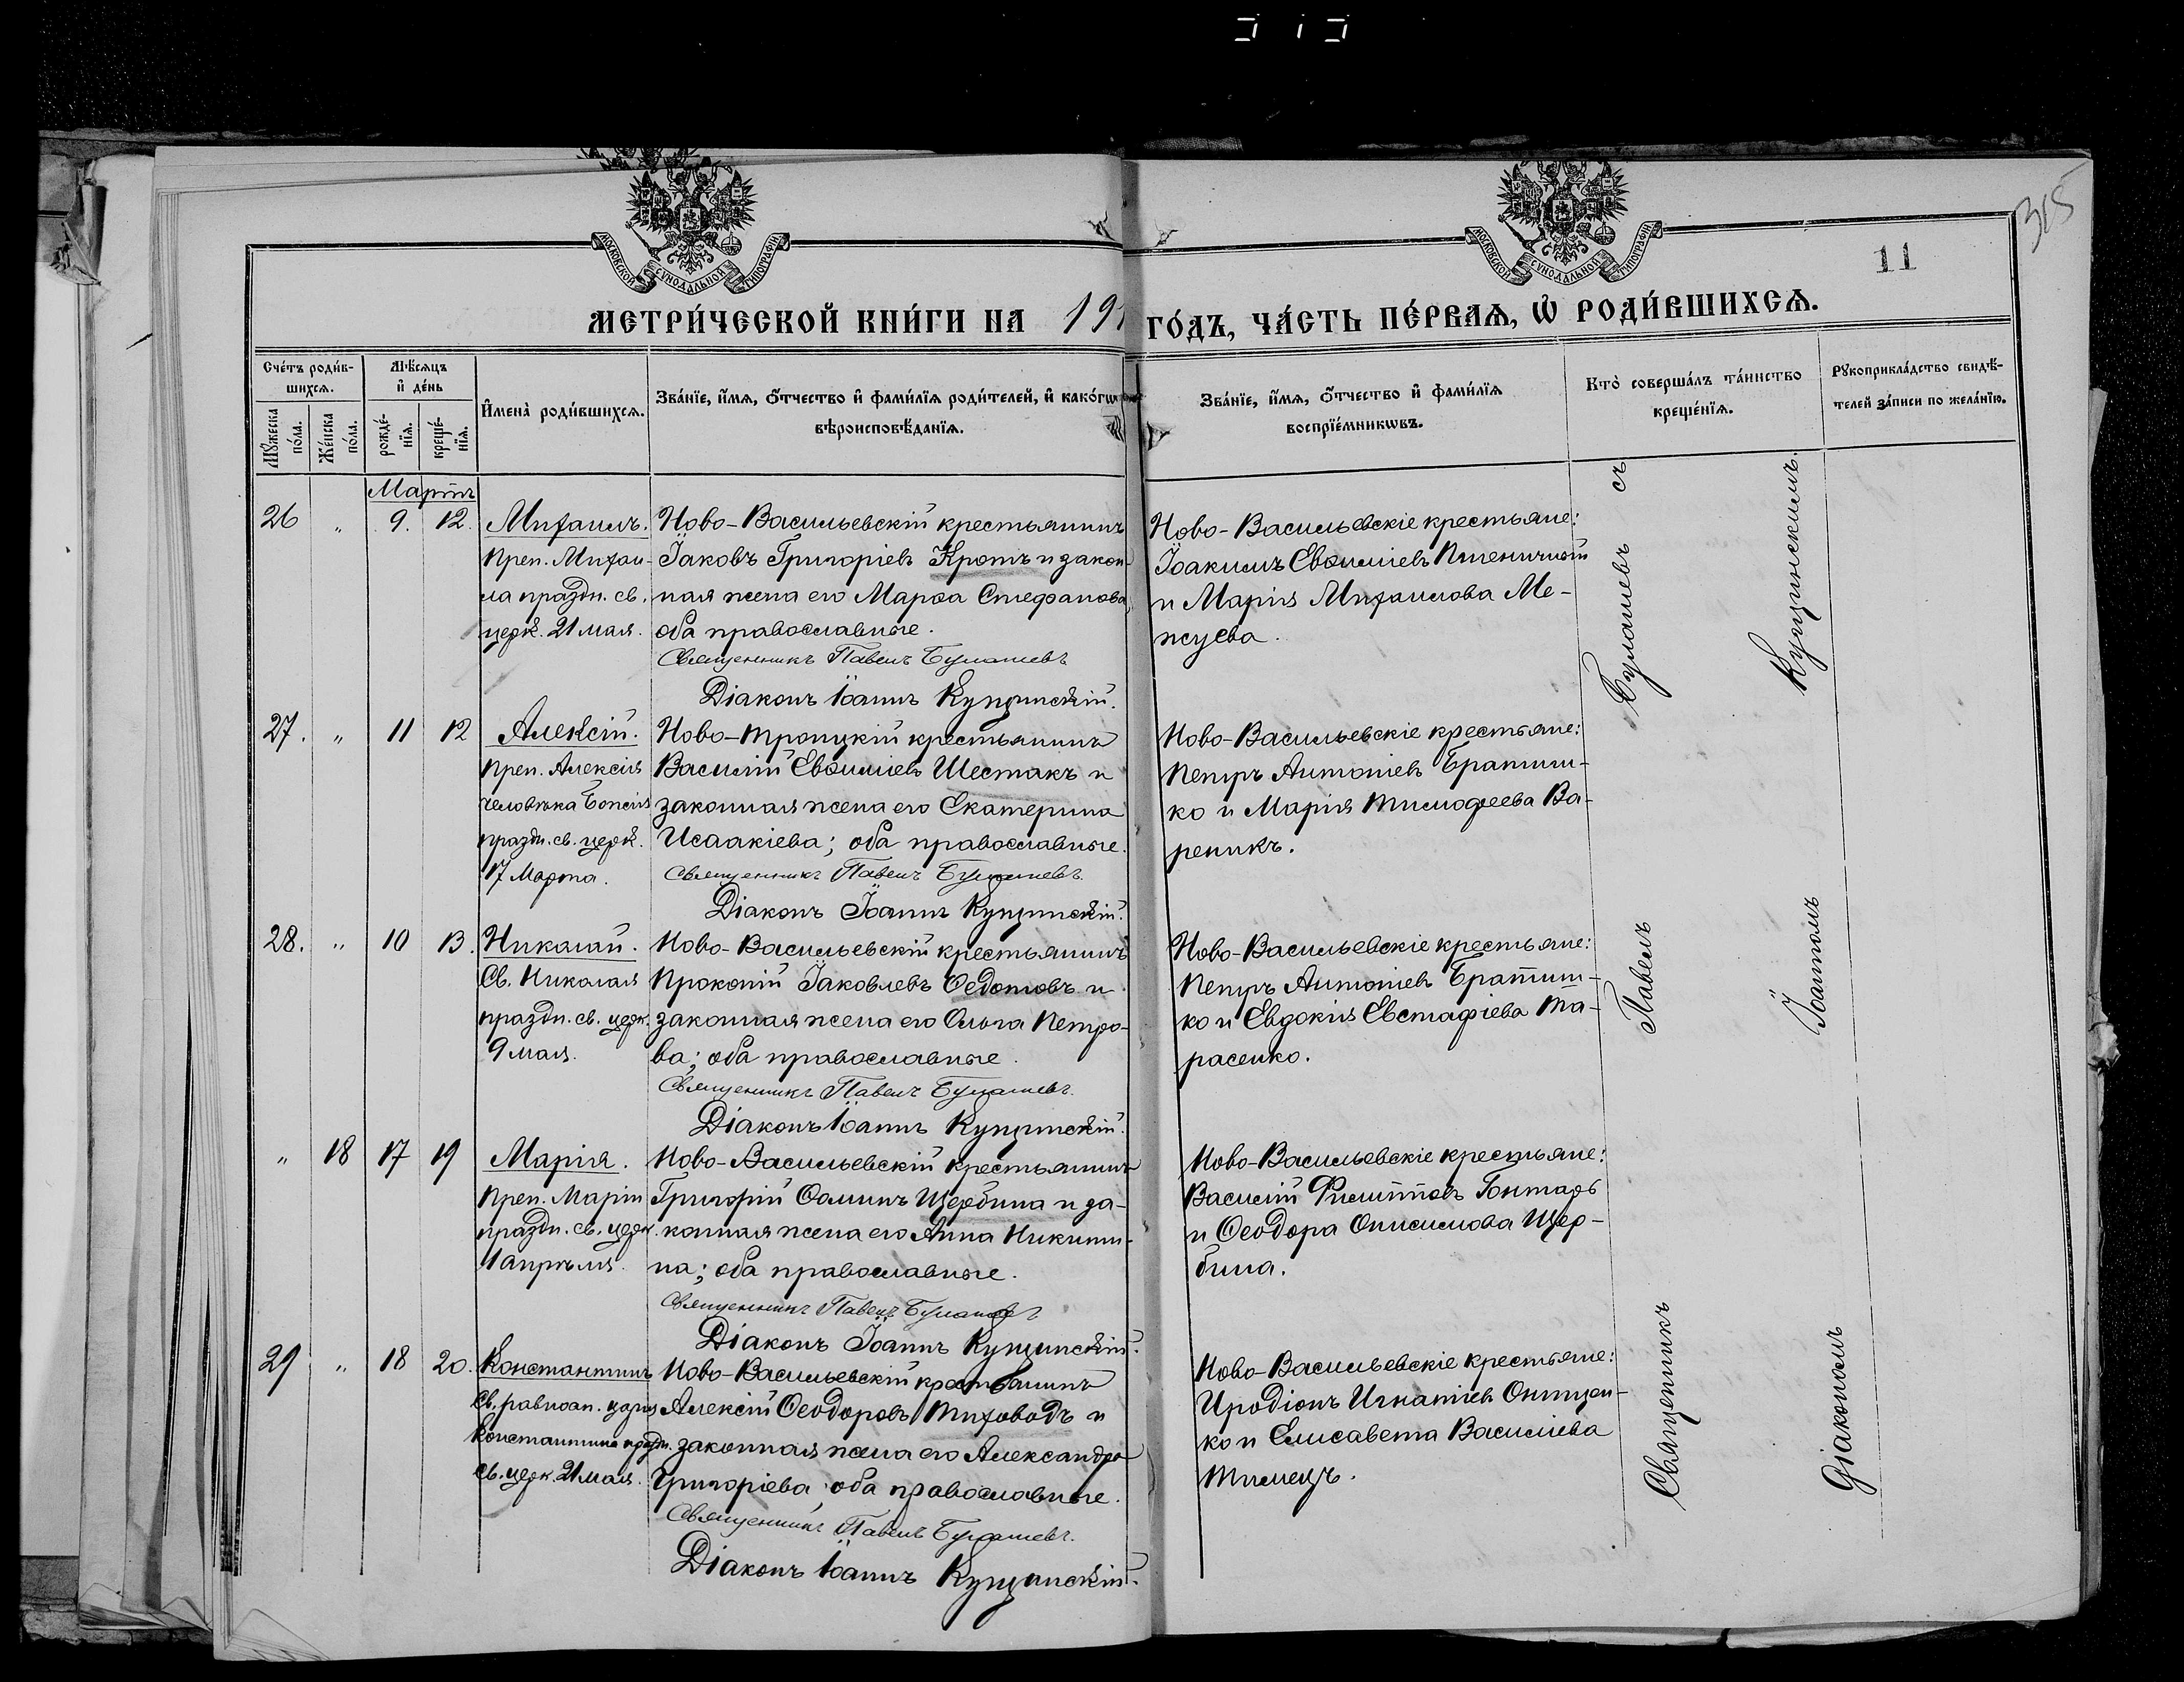 315
11
МОСКОВСКОЙ СУНОДАЛЬНОЙ ТИПОГРАФІИ
МОСКОВСКОЙ СУНОДАЛЬНОЙ ТИПОГРАФІИ
МЕТРИ́ЧЕСКОЙ КНИ́ГИ НА 191 ГО́ДЪ, ЧА́СТЬ ПЕ́РВАѦ, Ѡ҆ РОДИ́ВШИХСѦ.
Сче́тъ роди́в-
шихсѧ.
Мꙋ́жеска по́ла.
Же́нска по́ла.
Мѣ́сѧцъ
и҆ де́нь
рожде́-
нїѧ.
креще́-
нїѧ.
И҆мена̀ роди́вшихсѧ.
Зва́нїе, и҆́мѧ, ѻ҆́тчество и҆ фами́лїѧ роди́телей, и҆ како́гѡ
вѣроисповѣ́данїѧ.
Зва́нїе, и҆́мѧ, ѻ҆́тчество и҆ фами́лїѧ
воспрїе́мникѡвъ.
Кто̀ соверша́лъ та́инство
креще́нїѧ.
Рꙋкоприкла́дство свидѣ́-
телей за́писи по жела́нїю.
Мартъ
26 " 9. 12. Михаилъ.
Преп. Михаи-
ла праздн. св.
церк. 21 мая.
Ново-Васильевскій крестьянинъ
Іаковъ Григоріевъ Кротъ и закон-
ная жена его Марѳа Стефанова,
оба православные.
Священникъ Павелъ Булашевъ
Діаконъ Іоаннъ Кущинскій.
Ново-Васильевскіе крестьяне:
Іоакимъ Евѳиміевъ Пшеничный
и Марія Михаилова Ме-
жуева.
27. " 11 12 Алексій.
Преп. Алексія
человѣка Божія
праздн. св. церк.
17 Марта.
Ново-Троицкій крестьянинъ
Василій Евѳиміевъ Шестакъ и
законная жена его Екатерина
Исаакіева; оба православные.
Священникъ Павелъ Булашевъ.
Діаконъ Іоаннъ Кущинскій.
Ново-Васильевскіе крестьяне:
Петръ Антоніевъ Братиш-
ко и Марія Тимофеева Ва-
реникъ.
28. " 10 13. Николай.
Св. Николая
праздн. св. церк.
9 мая.
Ново-Васильевскій крестьянинъ
Прокопій Іаковлевъ Ѳедотовъ и
законная жена его Ольга Петро-
ва; оба православные.
Священникъ Павелъ Булашевъ.
Діаконъ Іоаннъ Кущинскій.
Ново-Васильевскіе крестьяне:
Петръ Антоніевъ Братиш-
ко и Евдокія Евстафіева Та-
расенко.
" 18 17 19 Марія.
Преп. Маріи
праздн. св. церк.
1 апрѣля.
Ново-Васильевскій крестьянинъ
Григорій Ѳоминъ Щербина и за-
конная жена его Анна Никити-
на; оба православные.
Священникъ Павелъ Булашевъ
Діаконъ Іоаннъ Кущинскій.
Ново-Васильевскіе крестьяне:
Василій Филипповъ Гонтарь
и Ѳеодора Онисимова Щер-
бина.
29 " 18 20. Константинъ
Св. равноап. царя
Константина праздн.
св. церк. 21 мая.
Ново-Васильевскій крестьянинъ
Алексій Ѳеодоровъ Тиховодъ и
законная жена его Александра
Григоріева; оба православные.
Священникъ Павелъ Булашевъ.
Діаконъ Іоаннъ Кущинскій.
Ново-Васильевскіе крестьяне:
Иродіонъ Игнатіевъ Онищен-
ко и Елисавета Василіева
Тимецъ.
Священникъ Павелъ Булашевъ съ
Діакономъ Іоанномъ Кущинскимъ.